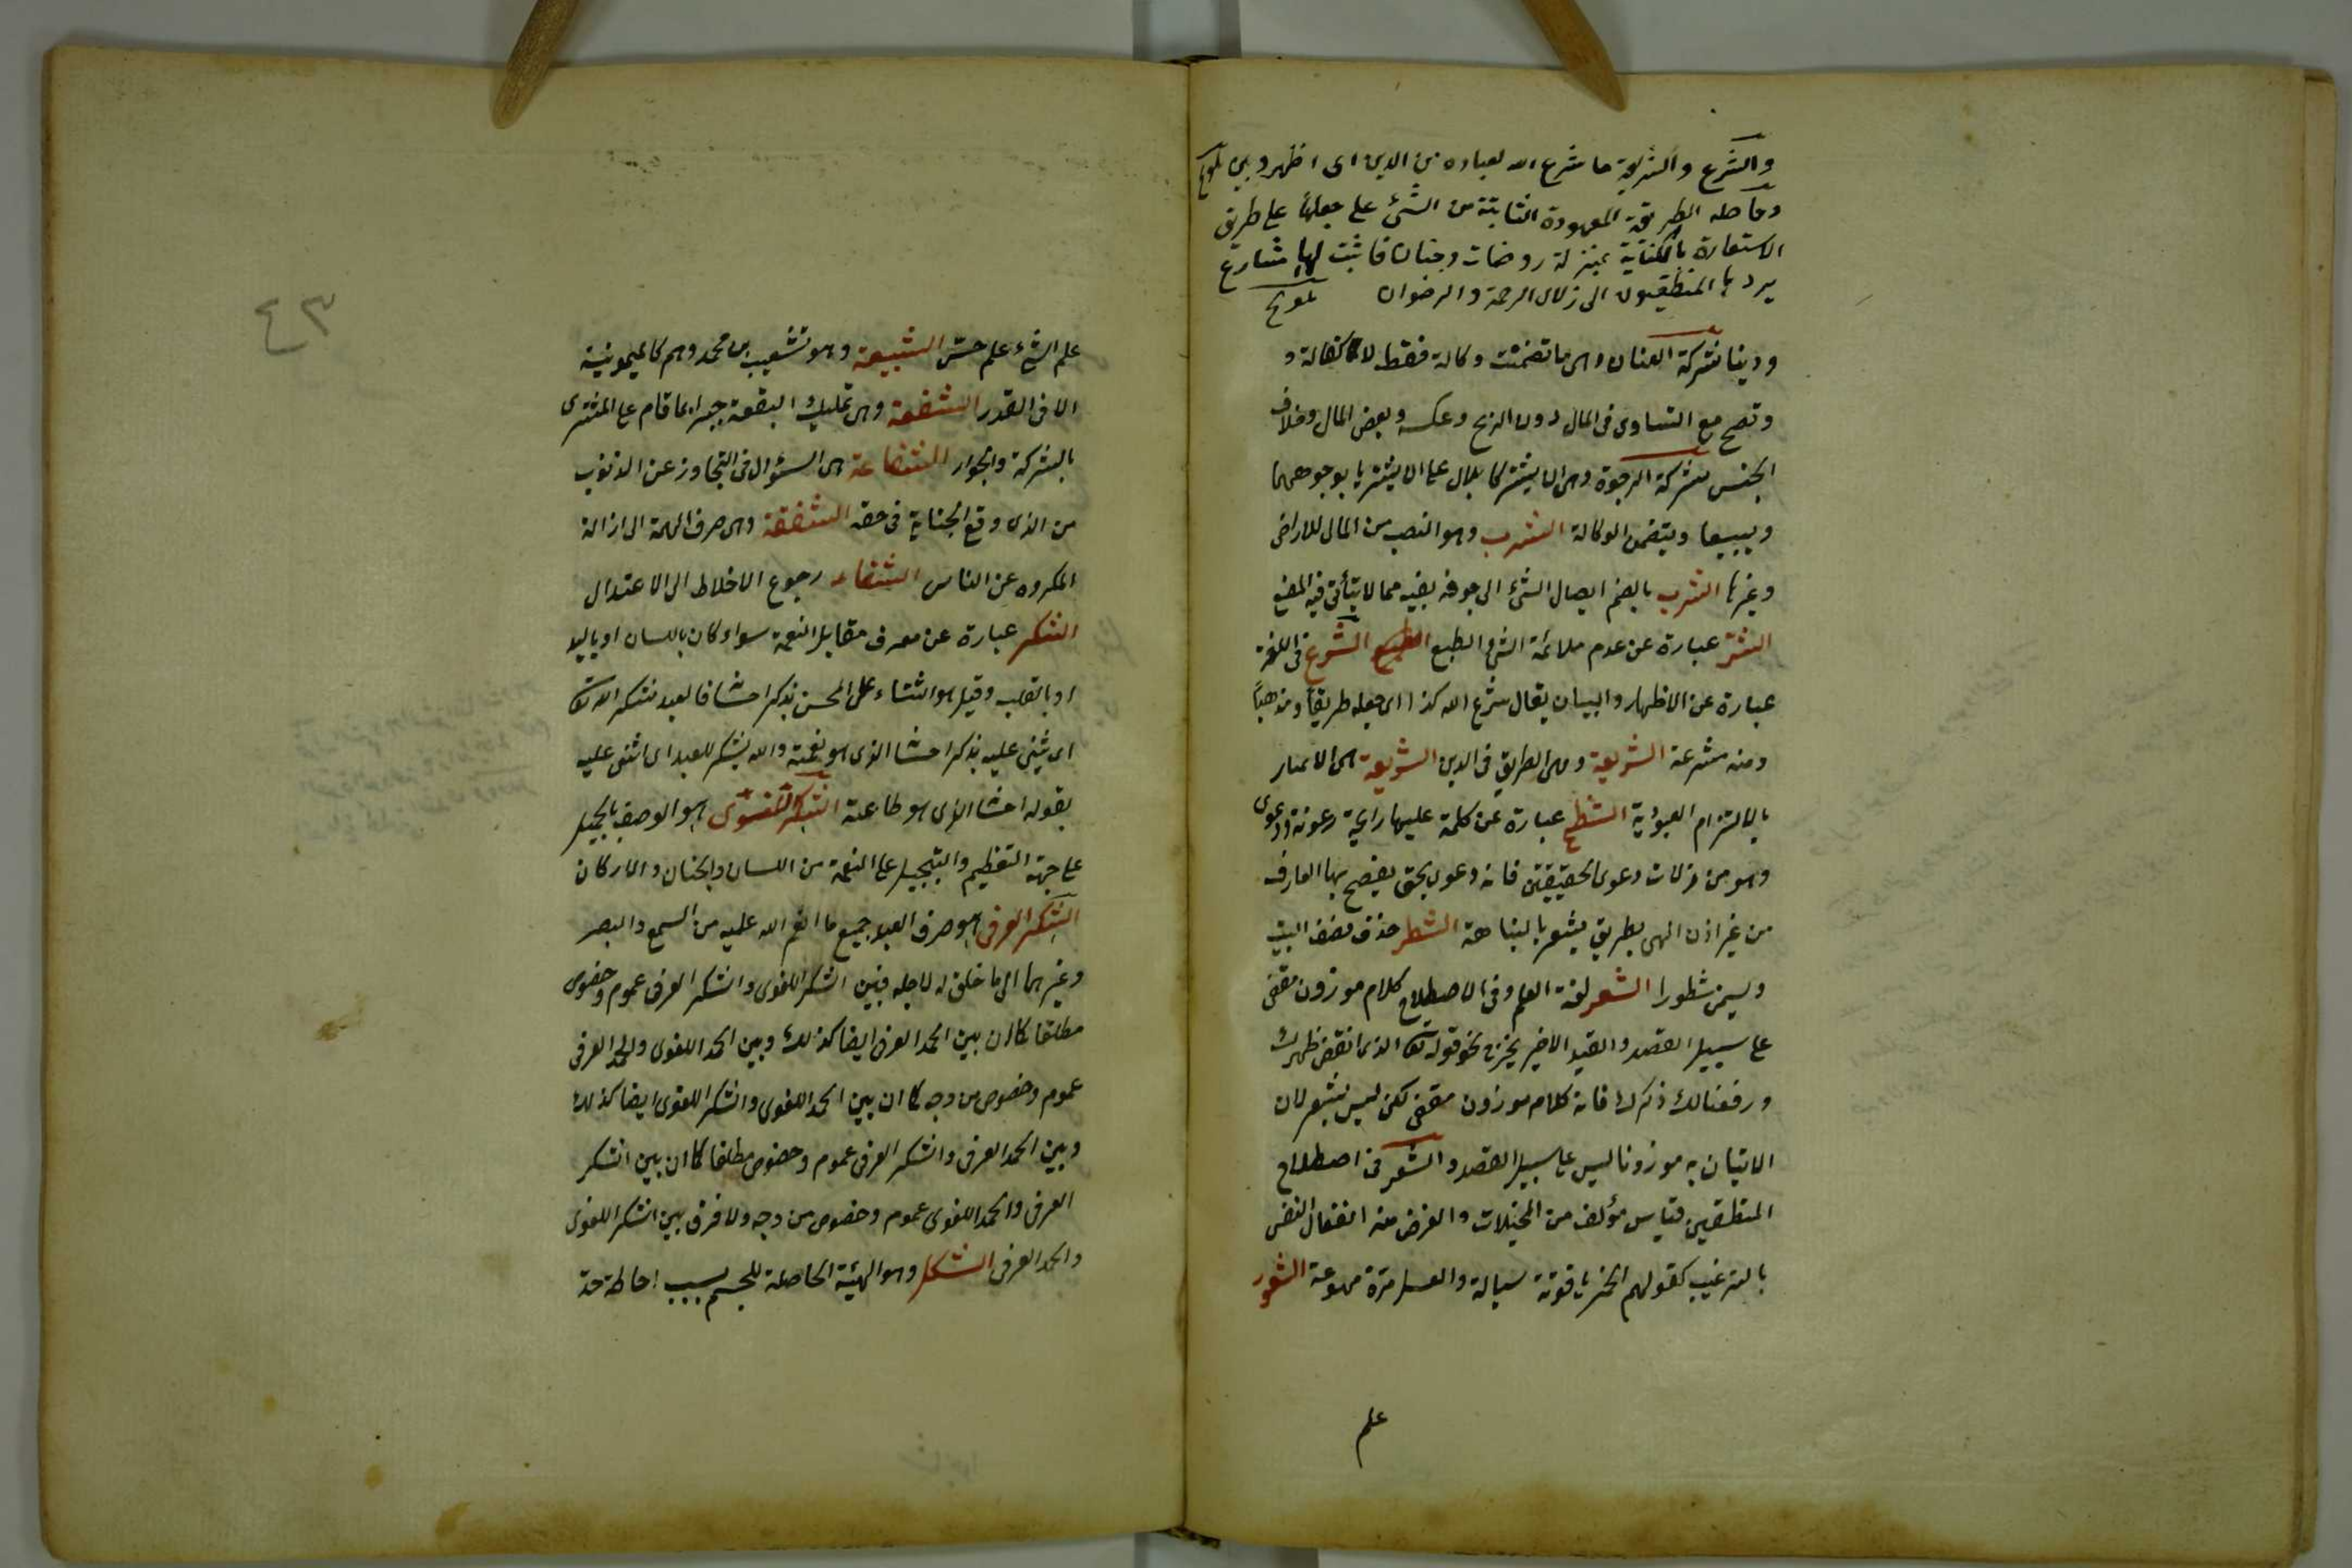 والشرع والشريعة ما شرع الله لعباده من الدين اى اظهر وبين تلويح
وحاصله الطريقة المعهودة الثابتة من الشئ على جعلها على طريق
الاستعارة بالكناية بمنزلة روضات وجنات فاثبت لها مشارع
يرد بها المتعطشون الى زلال الرحمة والرضوان تلويح
ودينا شركة العنان وهى ما تضمنت وكالة فقط لا كفالة و
وتصح مع التساوى فى المال دون الربح وعكسه وبعض المال وخلاف
الجنس شركة الوجوه وهى ان يشتركا بلا مال على ان يشتريا بوجوههما
ويبيعا ويتضمن الوكالة الشرب وهو النصيب من الماء للاراضى
وغيرها الشرب بالضم ايصال الشئ الى جوفه بفيه مما لا يتأتى فيه المضغ
الشر عبارة عن عدم ملائمة الشئ الطبع الشرع فى اللغة
عبارة عن الاظهار والبيان يقال شرع الله كذا اى جعله طريقا ومذهبا
ومنه مشرعة الشريعة وهى الطريق فى الدين الشريعة هى الائتمار
بالالتزام العبودية الشطح عبارة عن كلمة عليها رايحة رعونة ودعوى
وهو من زلات دعوى المحققين فانه دعوى بحق يفصح بها العارف
من غير اذن الهى بطريق يشعر بالنباهة الشطر حذف نصف البيت
ويسمى مشطورا الشعر لغة العلم وفى الاصطلاح كلام موزون مقفى
على سبيل القصد والقيد الاخير يخرج نحو قوله تعا الذى انقض ظهرك
ورفعنا لك ذكرك فانه كلام موزون مقفى لكن ليس بشعر لان
الاتيان به موزونا ليس على سبيل القصد والشعر فى اصطلاح
المنطقيين قياس مؤلف من المخيلات والغرض منه انفعال النفس
بالترغيب كقولهم الخمر ياقوتة سيالة والعسل مرة مهوعة الشعور
علم
٤٣
علم الشئ علم حس الشيعية وهو شعيب بن محمد وهم كالميمونية
الا فى القدر الشفعة وهى تمليك البقعة جبرا بما قام على المشترى
بالشركة والجوار الشفاعة هى السؤال فى التجاوز عن الذنوب
من الذى وقع الجناية فى حقه الشفقة وهى صرف الهمة الى ازالة
المكروه عن الناس الشفاء رجوع الاخلاط الى الاعتدال
الشكر عبارة عن معروف مقابل النعمة سواء كان باللسان او باليد
او بالقلب وقيل هو الثناء على المحسن بذكر احسانه فالعبد يشكر الله تعا
اى يثنى عليه بذكر احسانه الذى هو نعمة والله يشكر للعبد اى اثنى عليه
بقوله احسانه الذى هو طاعته الشكر اللغوى هو الوصف بالجميل
على جهة التعظيم والتبجيل على النعمة من اللسان والجنان والاركان
الشكر العرفى هو صرف العبد جميع ما انعم الله عليه من السمع والبصر
وغيرهما الى ما خلق له لاجله فبين الشكر اللغوى والشكر العرفى عموم وخصوص
مطلقا كما ان بين الحمد العرفى ايضا كذلك وبين الحمد اللغوى والحمد العرفى
عموم وخصوص من وجه كما ان بين الحمد اللغوى والشكر اللغوى ايضا كذلك
وبين الحمد العرفى والشكر العرفى عموم وخصوص مطلقا كما ان بين الشكر
العرفى والحمد اللغوى عموم وخصوص من وجه ولا فرق بين الشكر اللغوى
والحمد العرفى الشكل وهو الهيئة الحاصلة للجسم بسبب احاطة حد